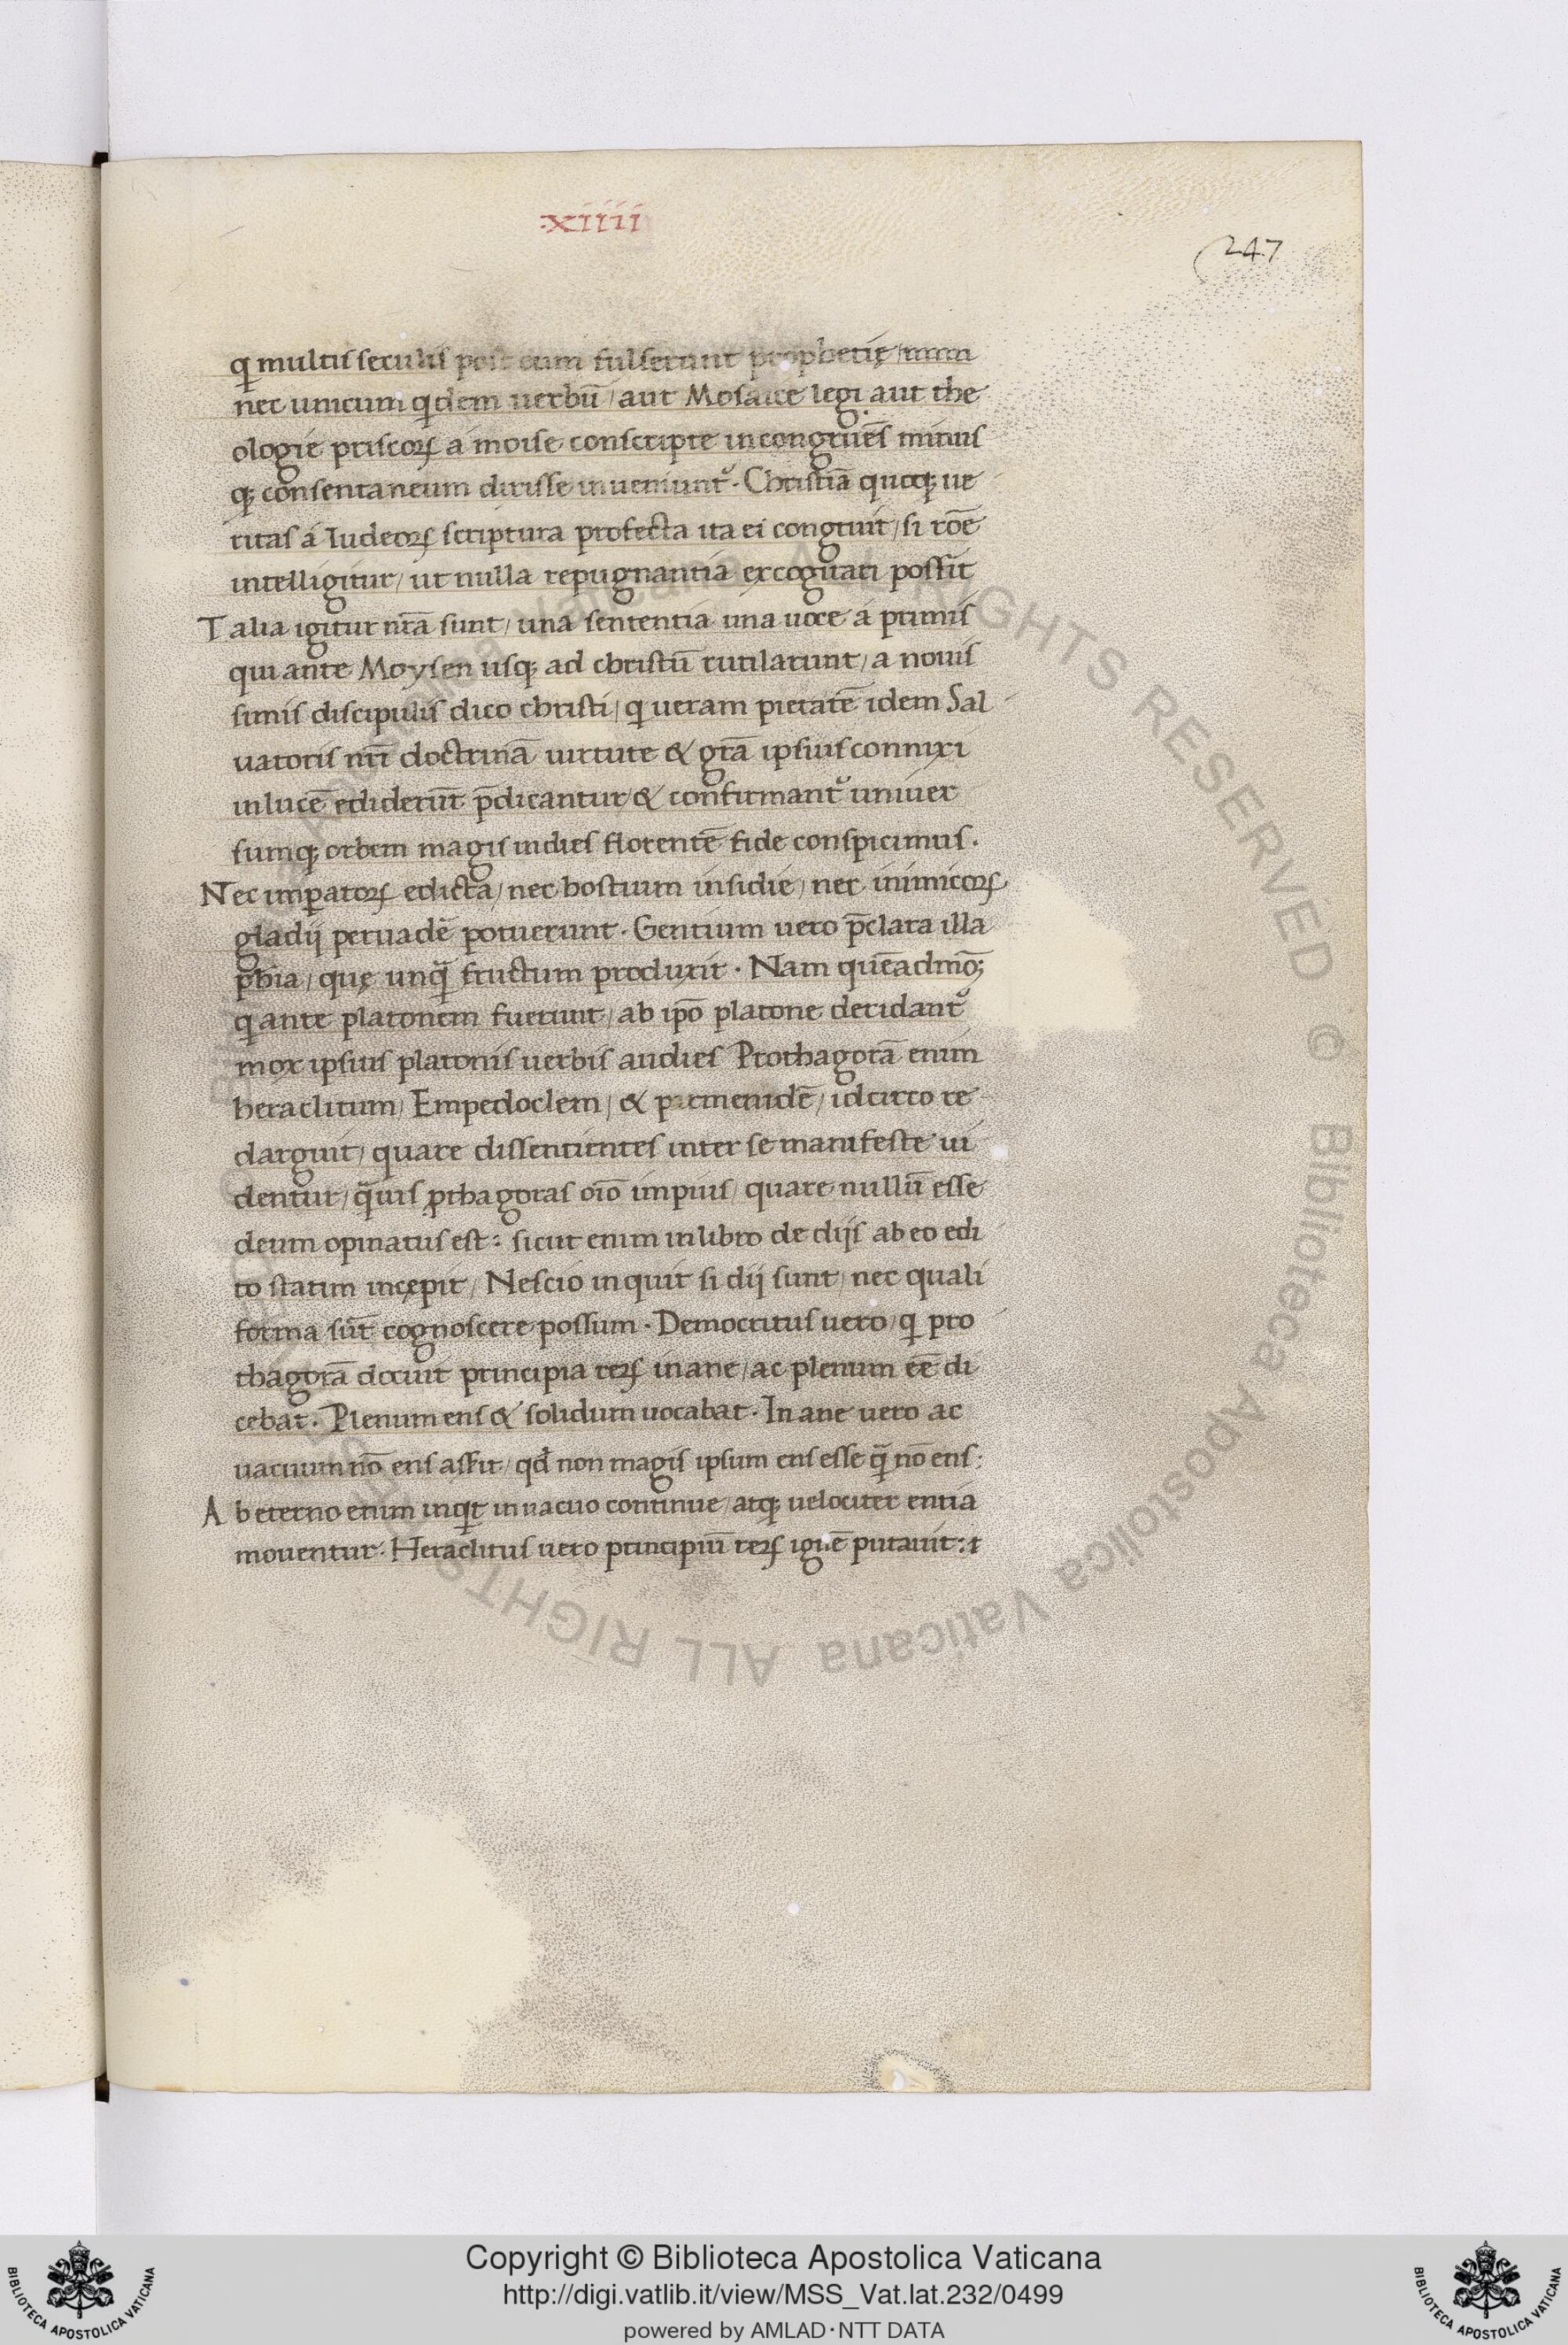 ·xiiii
247
qͥ multis seculis post eum fulserunt prophetię / nun
nec unicum qͥdem uerbū / aut Mosaice legi aut the
ologie priscoꝝ a moise conscripte incongruēs minus
qꝫ consentaneum dixisse inueniunt᷑ · Christiā quoqꝫ ue
ritas á Iudeoꝝ scriptura profecta ita ei congruit / si rōe
intelligitur / ut nulla repugnantia excogitari possit
Talia igitur nr̄a sunt / una sententia una uoce á primis
qui ante Moysen usqꝫ ad christū rutilarunt / a nouis
simis discipulis dico christi / qͥ ueram pietatē idem Sal
uatoris nr̄i doctrinā uirtute & gr̄a ipsius connixi
in lucē ediderūt p̄dicantur / & confirmant᷑ uniuer
sumqꝫ orbem magis indies florentē fide conspicimus .
Nec imꝑatoꝝ edicta / nec hostium insidie / nec inimicoꝝ
gladij peruadē potuerunt · Gentium uero p̄clara illa
phīa / quę unqͣ̄ fructum produxit · Nam quēadmōꝫ
qͥ ante platonem fuerunt / ab ipō platone deridant᷑
mox ipsius platonis uerbis audies Prothagorā enim
heraclitum / Empedoclem / & parmenidē / idcirco re
darguit / quare dissentientes inter se manifeste ui
dentur / qͣ̄uis ꝓthagoras oīo impius / quare nullū esse
deum opinatus est : sicut enim in libro de dijs ab eo edi
to statim incępit / Nescio inquit si dij sunt / nec quali
forma sūt cognoscere possum · Democritus uero / qͥ pro
thagorā docuit principia reꝝ inane / ac plenum eē di
cebat . Plenum ens & solidum uocabat · Inane uero ac
uacuum nō ens asserit / qđ non magis ipsum ens esse qͣ̄ nō ens :
Ab eterno enim inqͥt in uacuo continue / atqꝫ uelociter entia
mouentur · Heraclitus uero principiū reꝝ ignē putauit : ⁊
Copyright © Biblioteca Apostolica Vaticana
http://digi.vatlib.it/view/MSS_Vat.lat.232/0499
powered by AMLAD·NTT DATA